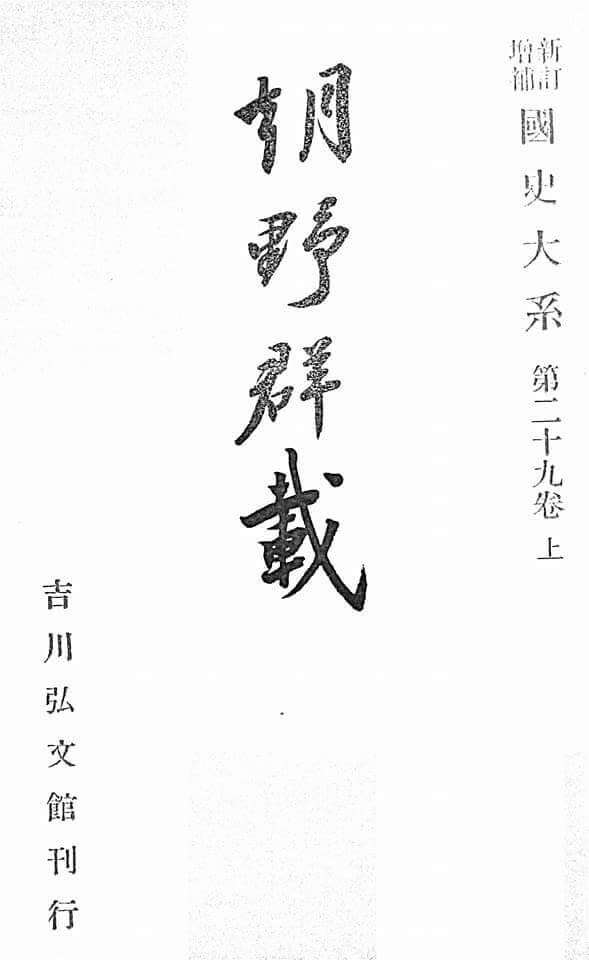 新訂
增補 國史大系 第二十九卷 上
朝野群載
吉川弘文館刊行